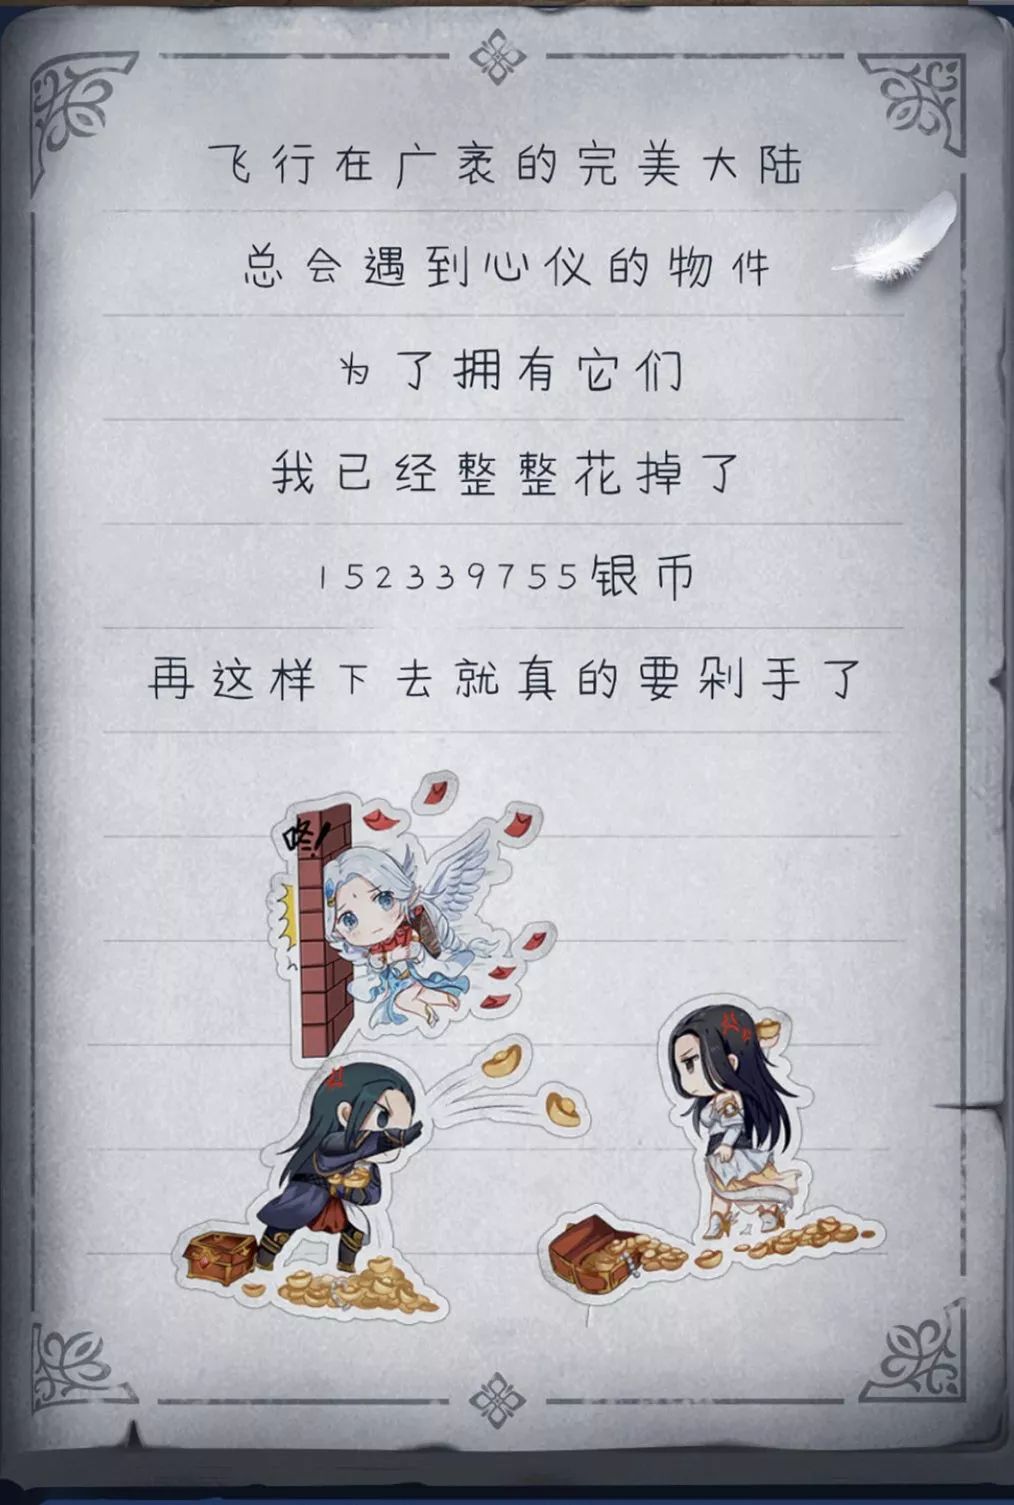 飞行在广袤的完美大陆
总会遇到心仪的物件
为了拥有它们
我已经整整花掉了
152339755银币
再这样下去就真的要剁手了
咚!